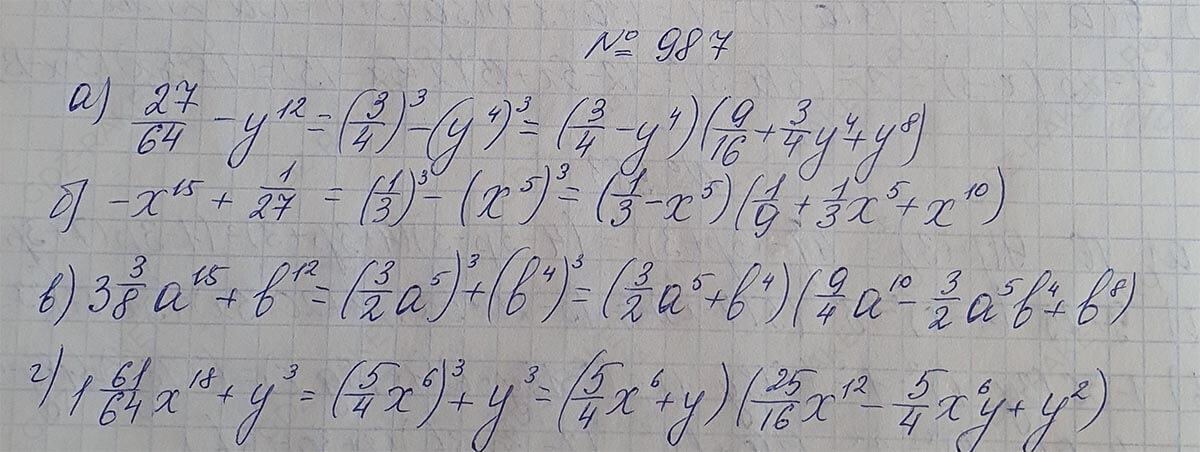 № 987
а) 27/64 - y¹² = (3/4)³ - (y⁴)³ = (3/4 - y⁴)(9/16 + 3/4y⁴ + y⁸)
б) -x¹⁵ + 1/27 = (1/3)³ - (x⁵)³ = (1/3 - x⁵)(1/9 + 1/3x⁵ + x¹⁰)
в) 3 3/8a¹⁵ + b¹² = (3/2a⁵)³ + (b⁴)³ = (3/2a⁵ + b⁴)(9/4a¹⁰ - 3/2a⁵b⁴ + b⁸)
г) 1 61/64x¹⁸ + y³ = (5/4x⁶)³ + y³ = (5/4x⁶ + y)(25/16x¹² - 5/4x⁶y + y²)